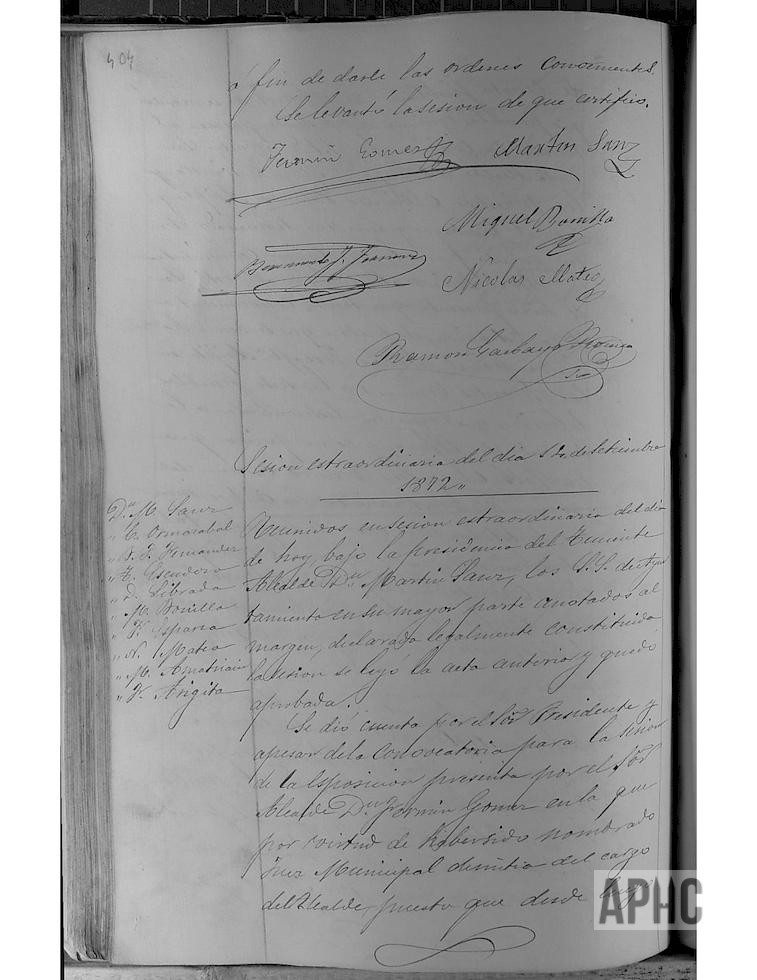 404
á fin de darle las ordenes convenientes.
Se levantó la sesion de que certifico.
Fermin Gomez Martin Sanz
Miguel Bonilla
Nicolas Mateo
Ramon Garbayo
Sesion estraordinaria del dia 1º de Setiembre
1872"
Dn M. Sanz
" C. Ormazabal
" J. Fernandez
" Escudero
" D. Librada
" M. Bonilla
" Esparza
" N. Mateo
" M. Amatriain
" Arigita
Reunidos en sesion estraordinaria del dia
de hoy bajo la presidencia del Teniente
Alcalde Dn Martin Sanz, los S.S. de Ayun
tamiento en su mayor parte anotados al
margen, declarada legalmente constituida
la sesion se leyo la acta anterior y quedó
aprobada.
Se dió cuenta por el Sor Presidente y
apesar de la Convocatoria para la sesion
de la Esposicion presenta por el Sor
Alcalde Dn Fermin Gomez en la que
por virtud de haber sido nombrado
Juez Municipal dimitia del cargo
del Alcalde, puesto que desde luego
APHC